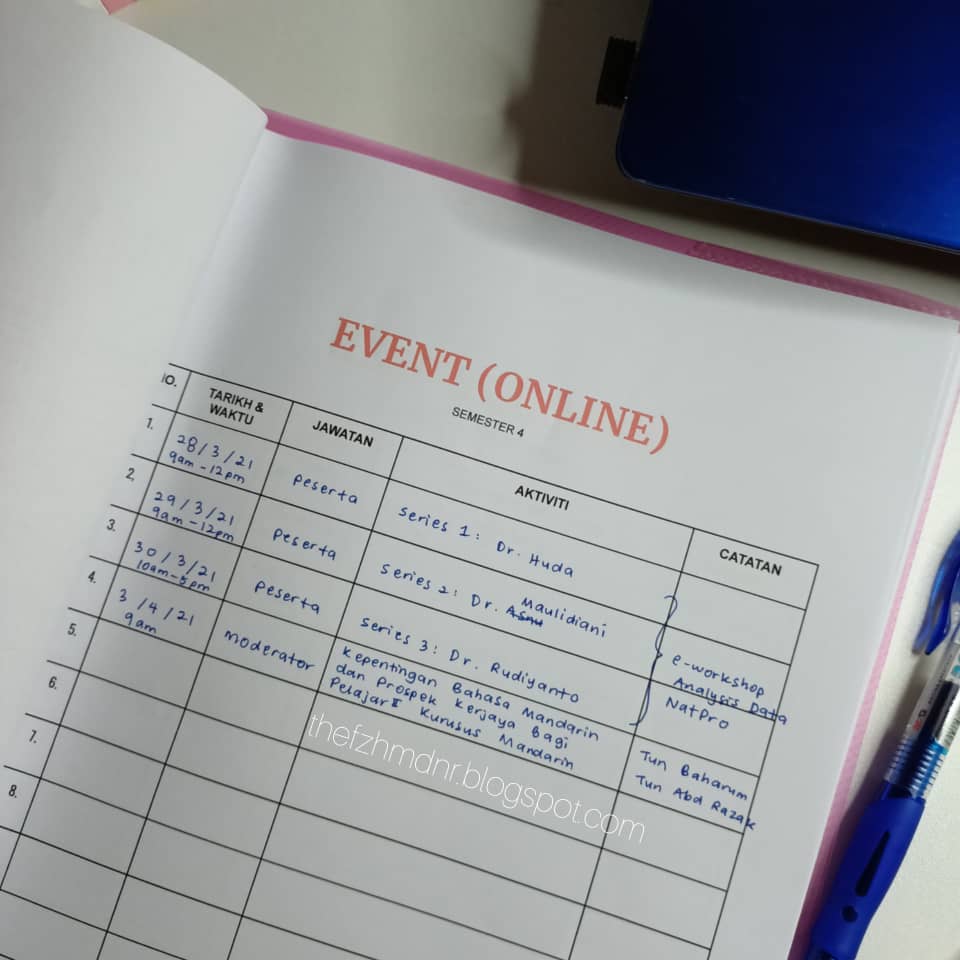 EVENT (ONLINE)
SEMESTER 4
NO. TARIKH & WAKTU JAWATAN AKTIVITI CATATAN
1. 28/3/21 9am - 12pm peserta series 1 : Dr. Huda
2. 29/3/21 9am - 12pm peserta series 2 : Dr. Maulidiani
3. 30/3/21 10am - 5pm peserta series 3 : Dr. Rudiyanto
e-workshop
Analysis Data
NatPro
4. 3/4/21 9am moderator
Kepentingan Bahasa Mandarin
dan Prospek Kerjaya Bagi
Pelajar2 Kurusus Mandarin
Tun Baharum
Tun Abd Razak
5.
6.
7.
8.
thefzhmdnr.blogspot.com